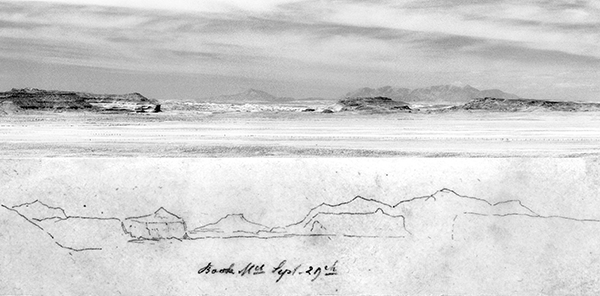 Book Mts Sept. 29th